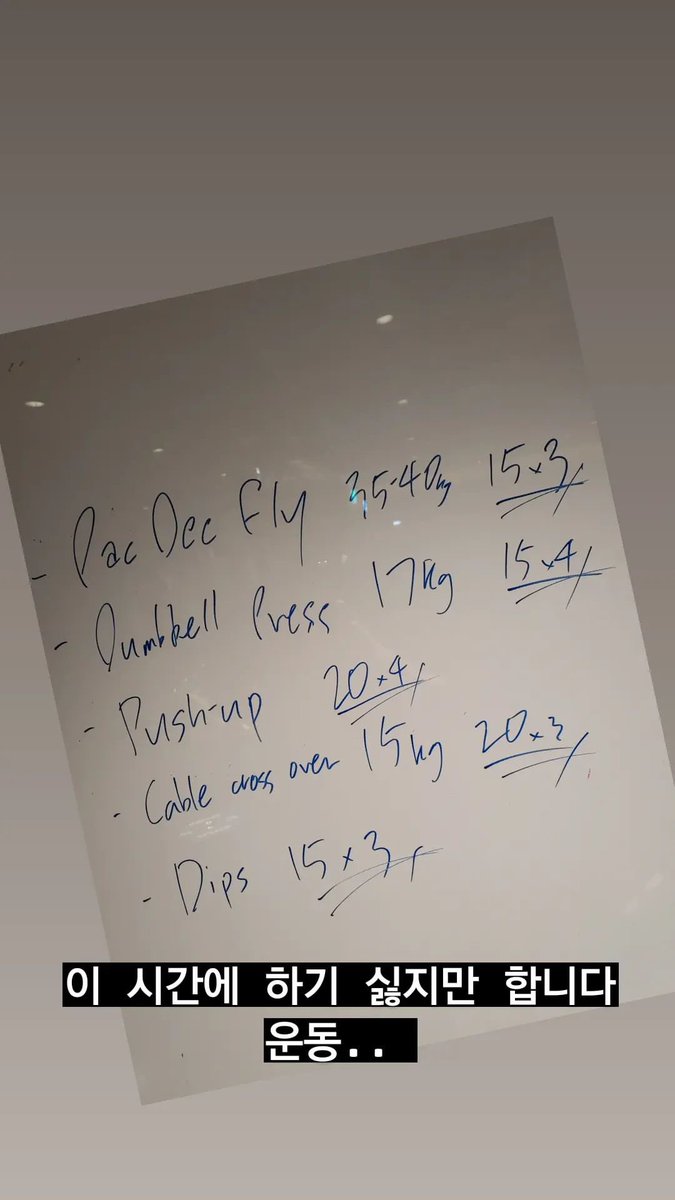 - Pac Dec Fly 35-40kg 15x3
- Dumbbell Press 17kg 15x4
- Push-up 20x4
- Cable cross over 15kg 20x3
- Dips 15x3
이 시간에 하기 싫지만 합니다
운동..